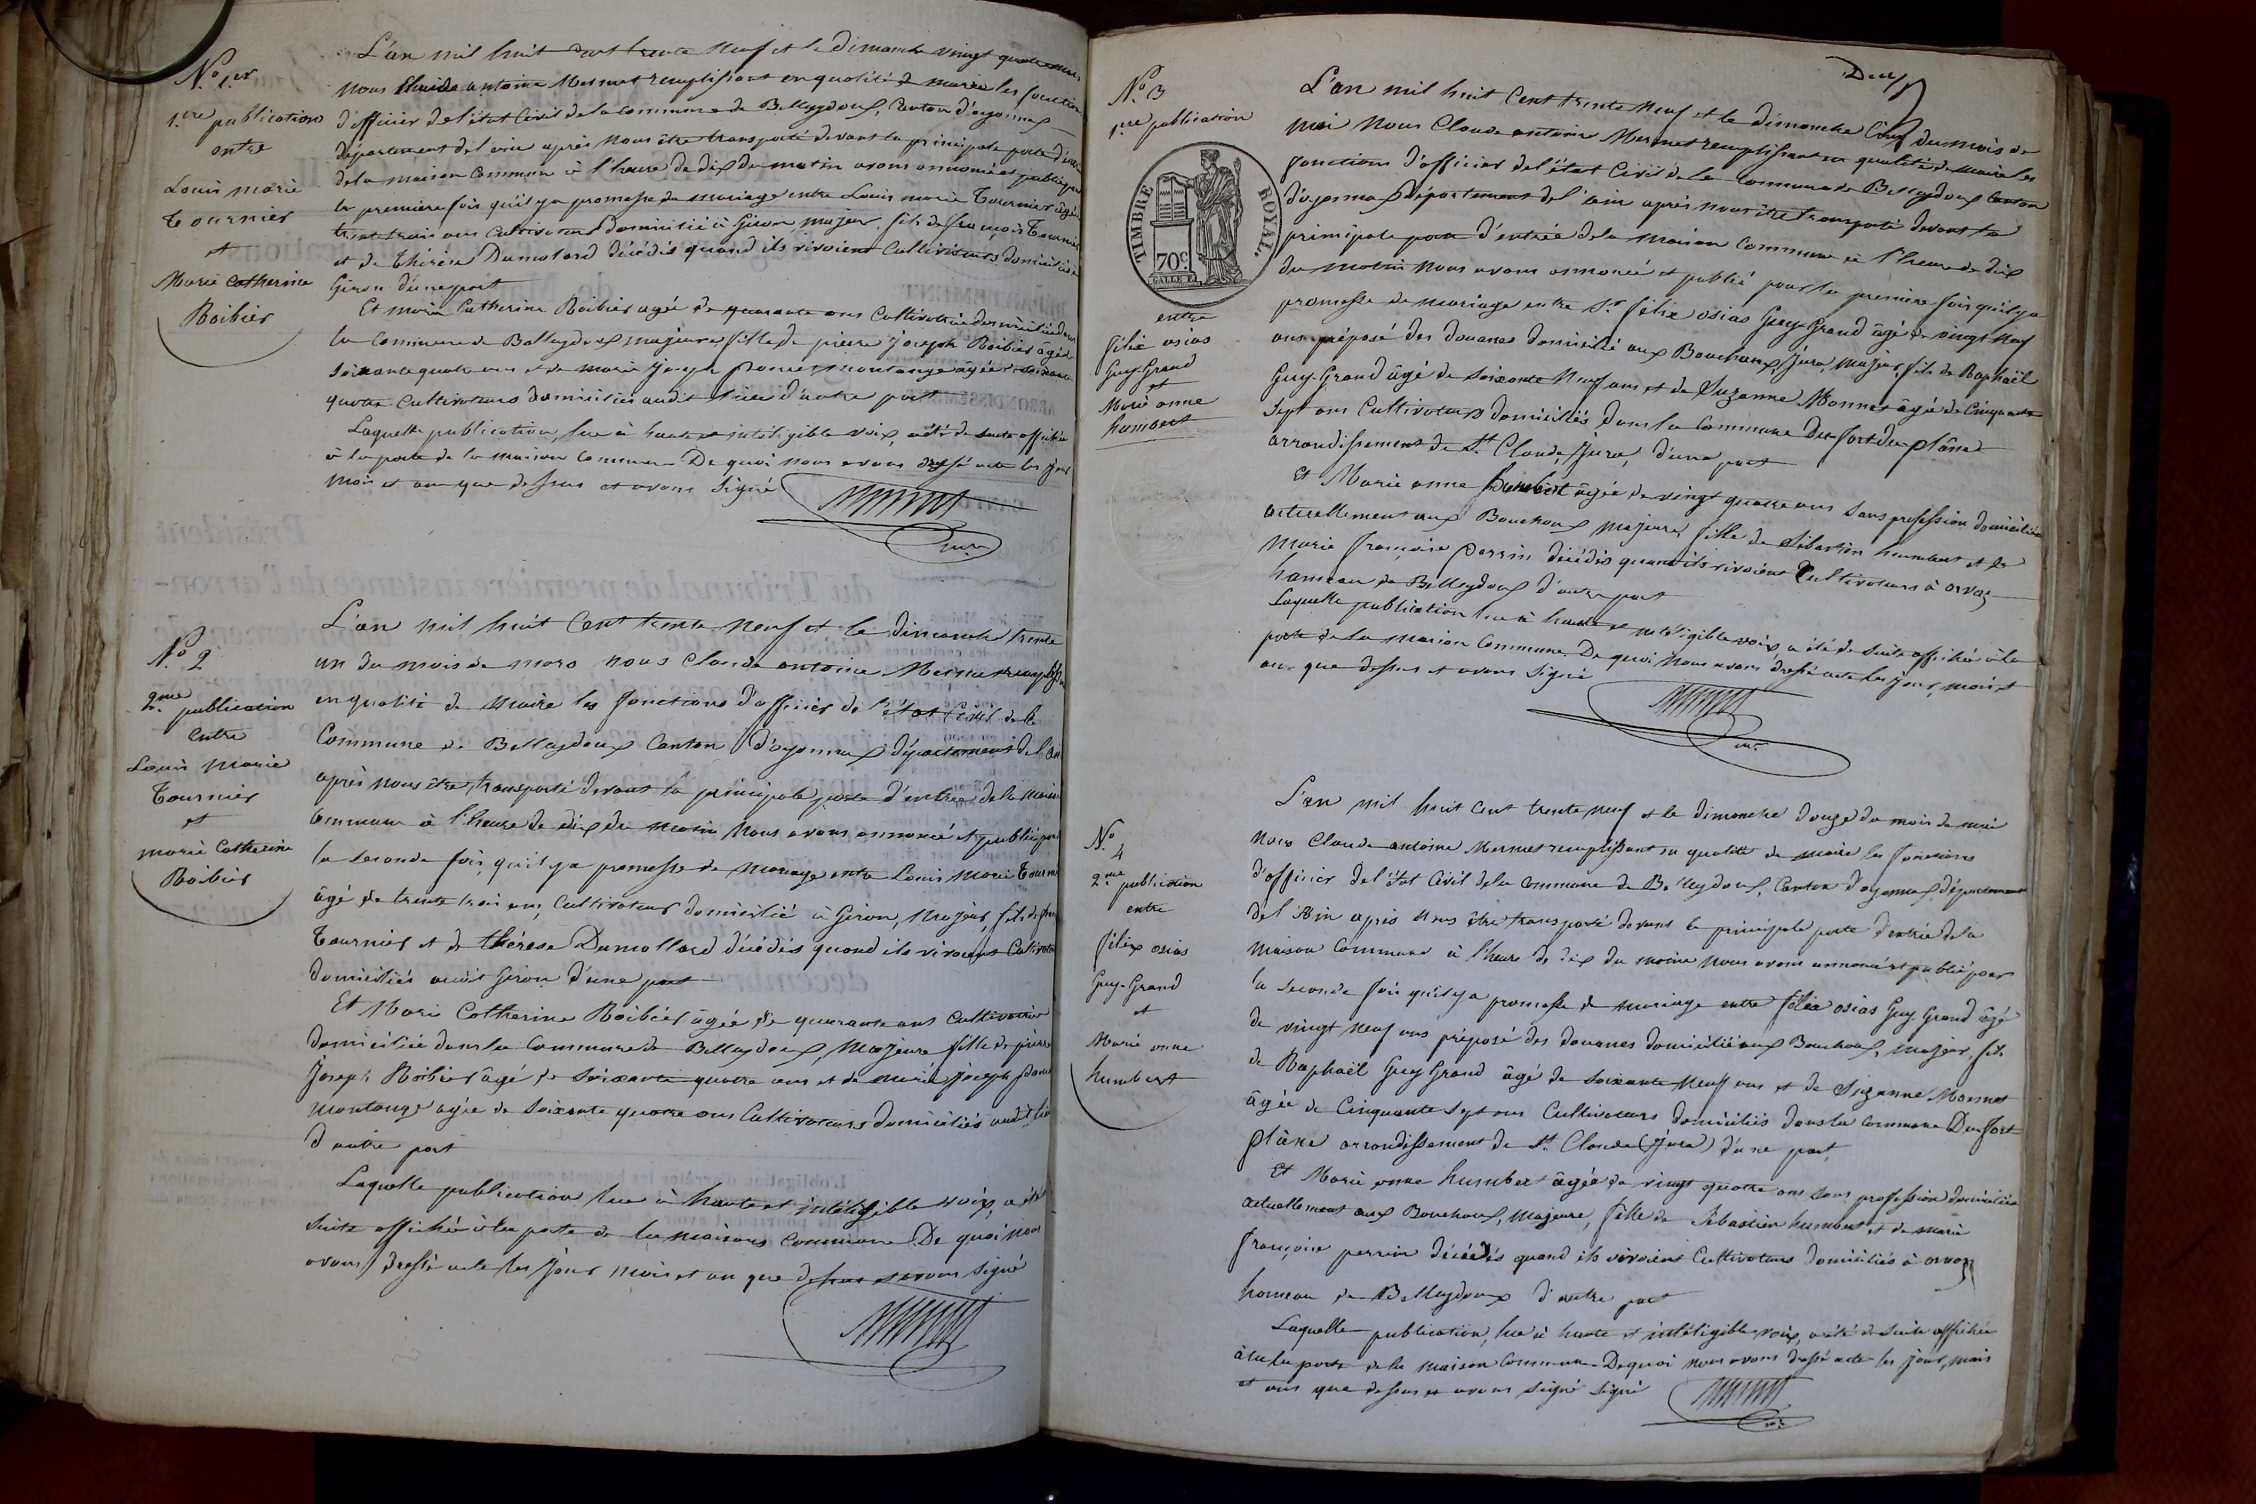 N.o 1.er
1.ere publication
entre
Louis marie
Tournier
et
Marie Catherine
Roibier
L'an mil huit cent trente neuf et le dimanche vingt quatre mars
nous Claude antoine Mermet remplissant en qualité de maire les fonctions
d'officier de l'état Civil de la commune de Belleydoux, Canton d'oyonnax
département de l'ain après nous être transporté devant la principale porte d'entrée
de la maison Commune à l'heure de dix du matin avons annoncé et publié pour
la premiere fois qu'il y a promesse de mariage entre Louis marie Tournier âgé de
trente trois ans Cultivateur domicilié à Giron, majeur, fils de françois Tournier
et de Thérèse Dumolard décédés quand ils vivoient Cultivateurs domiciliés à
Giron d'une part
Et marie Catherine Roibier agée de quarante ans Cultivatrice domiciliée dans
la Commune de Belleydoux majeure fille de pierre joseph Roibier âgé de
soixante quatre ans et de marie joseph poncet montange âgée de soixante
quatre Cultivateurs domiciliés audit lieu d'autre part
Laquelle publication, lue à haute et intéligible voix, a été de suite affichée
à la porte de la maison Commune De quoi nous avons dressé acte les jour
mois et an que dessus et avons signé
N.o 2
2.me publication
entre
Louis Marie
Tournier
et
marie Catherine
Roibier
L'an mil huit Cent trente neuf et le dimanche trente
un du mois de mars nous Claude antoine Mermet remplissant
en qualité de maire les fonctions d'officier de l'état Civil de la
Commune de Belleydoux Canton d'oyonnax département de l'ain
après nous être transporté devant la principale porte d'entrée de la maison
Commune à l'heure de dix du matin nous avons annoncé et publié pour
la seconde fois qu'il y a promesse de mariage entre Louis Marie Tournier
âgé de trente trois ans, Cultivateur domicilié à Giron, majeur, fils de
Tournier et de thérèse Dumollard décédés quand ils vivoient Cultivateurs
domiciliés audit Giron d'une part
Et Marie Catherine Roibier âgée de quarante ans Cultivatrice
domiciliée dans la Commune de Belleydoux, majeure fille de pierre
joseph Roibier âgé de soixante quatre ans et de marie joseph poncet
montange agée de soixante quatre ans Cultivateurs domiciliés audit lieu
d'autre part
Laquelle publication lue à haute et intéligible voix, a été
suite affichée à la porte de la maison Commune De quoi nous
avons dressé acte les jour mois et an que dessus et avons signé
Deux
N.o 3
1.ere publication
TIMBRE ROYAL
70 c
entre
félix osias
Guy-Grand
et
Marie anne
humbert
L'an mil huit Cent trente neuf et le dimanche Cinq du mois de
mai Nous Claude antoine Mermet remplissant en qualité de maire les
fonctions d'officier de l'état Civil de la Commune de Belleydoux Canton
d'oyonnax département de l'ain après nous être transporté devant la
principale porte d'entrée de la maison Commune à l'heure de dix
du matin nous avons annoncé et publié pour la premiere fois qu'il y a
promesse de mariage entre S.r félix osias Guy-Grand âgé de vingt neuf
ans préposé des douanes domicilié aux Bouchoux, Jura, majeur, fils de Raphaël
Guy-Grand âgé de soixante neuf ans et de Suzanne Monnet âgée de Cinquante
sept ans Cultivateurs domiciliés dans la Commune du fort du plâne
arrondissement de S.t Claude, Jura, d'une part
Et Marie anne humbert âgée de vingt quatre ans sans profession domiciliée
actuellement aux Bouchoux majeure, fille de Sébastien humbert et de
Marie françoise perrin décédés quand ils vivoient Cultivateurs à orvaz
hameau de Belleydoux d'autre part
Laquelle publication lue à haute et intéligible voix, a été de suite affichée à la
porte de la maison Commune. De quoi nous avons dressé acte les jour, mois et
an que dessus et avons signé
N.o
4
2.me publication
entre
félix osias
Guy-Grand
et
Marie anne
humbert
L'an mil huit cent trente neuf et le dimanche douze du mois de mai
nous Claude antoine Mermet remplissant en qualité de maire les fonctions
d'officier de l'état Civil de la Commune de Belleydoux, Canton d'oyonnax département
de l'Ain après nous être transporté devant la principale porte d'entrée de la
maison Commune à l'heure de dix du matin nous avons annoncé et publié pour
la seconde fois qu'il y a promesse de mariage entre félix osias Guy Grand âgé
de vingt neuf ans préposé des douanes domicilié aux Bouchoux, majeur, fils
de Raphaël Guy Grand âgé de soixante neuf ans et de Suzanne Monnet
âgée de Cinquante sept ans Cultivateurs domiciliés dans la commune Du fort
plâne arrondissement de S.t Claude (Jura) d'une part
Et Marie anne humbert âgée de vingt quatre ans sans profession domiciliée
actuellement aux Bouchoux, majeure, fille de Sébastien humbert et de marie
françoise perrin décédés quand ils vivoient Cultivateurs domiciliés à orvaz
hameau de Belleydoux d'autre part
Laquelle publication, lue à haute et intéligible voix, a été de suite affichée
à la la porte de la maison commune. De quoi nous avons dressé acte les jour, mois
et ans que dessus et avons signé signé